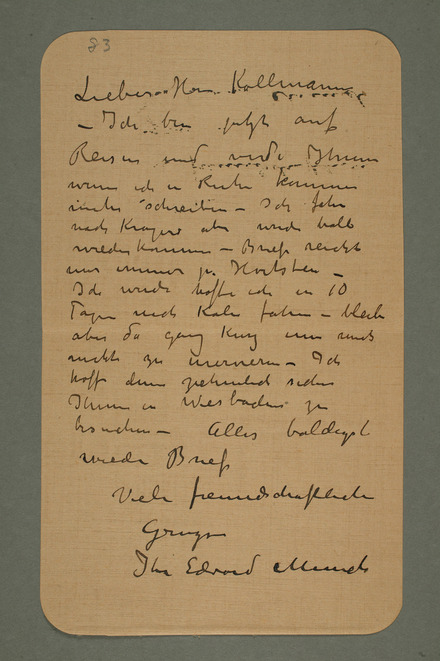 83
Lieber Herr Kollmann
– Ich bin jetzt auf
Reisen und werde Ihnen
wenn ich in Ruhe kommen
mehr schreiben – Ich fahr
nach Kragerø aber werde bald
wieder kommen – Brief reicht
mir immer pr. Hvitsten –
Ich werde hoffe ich in 10
Tagen nach Köln fahren – bleibe
aber da ganz kurz um mich
nicht zu – Ich
hoffe dann
Ihnen in Wiesbaden zu
besuchen – Alles baldigst
wieder Brief
Viele freundschaftliche
Grüsse
Ihr Edvard Munch